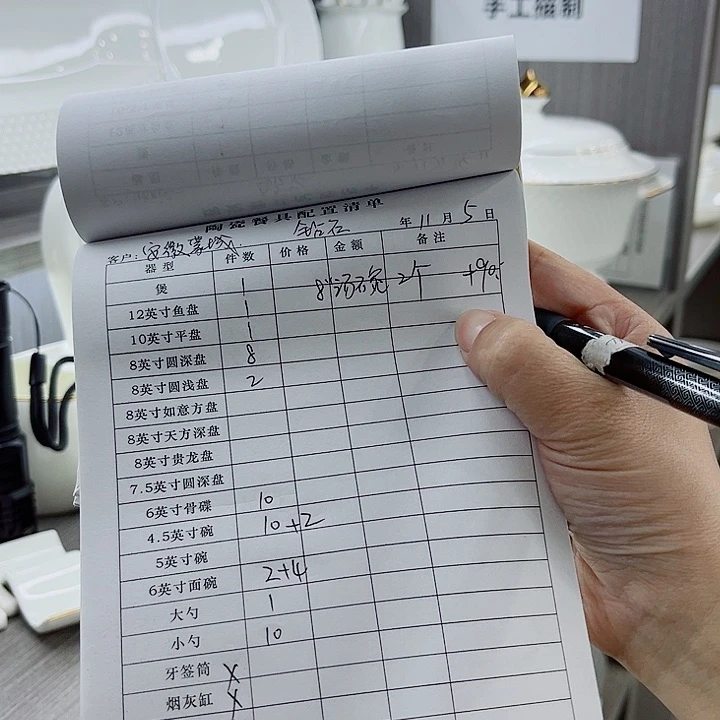 手工描制
陶瓷餐具配置清单
钻石
客户：安徽蒙城 年 11 月 5 日
器型 件数 价格 金额 备注
煲 1 8"汤碗 2个 +90.
12英寸鱼盘 1
10英寸平盘 1
8英寸圆深盘 8
8英寸圆浅盘 2
8英寸如意方盘
8英寸天方深盘
8英寸贵龙盘
7.5英寸圆深盘
6英寸骨碟 10
4.5英寸碗 10+2
5英寸碗
6英寸面碗 2+4
大勺 1
小勺 10
牙签筒 X
烟灰缸 X